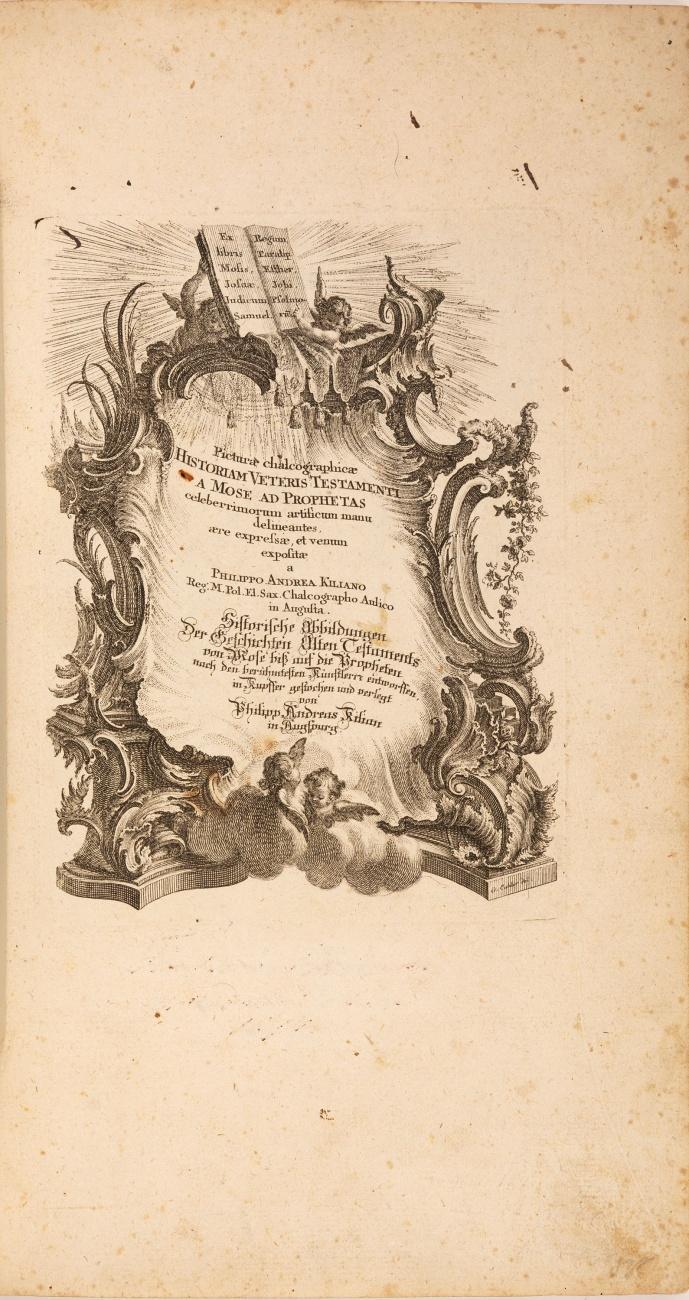 Ex
libris
Mosis.
Josuæ.
Judicum
Samuel.
Regum
Paralip
Esther
Jobi
Psalmo-
rũs
Picturæ chalcographicæ
HISTORIAM VETERIS TESTAMENTI
A MOSE AD PROPHETAS
celeberrimorum artificum manu
delineantes,
ære expreſsæ, et venum
expositæ
a
PHILIPPO ANDREA KILIANO
Reg. M. Pol. El. Sax. Chalcographo Aulico
in Augusta.
Hiſtoriſche Abbildungen
Der Geſchichten Alten Teſtaments
von Moſe biß auf die Propheten
nach den berühmteſten Künſtlern entworffen,
in Kupffer geſtochen und verlegt
von
Philipp Andreas Kilian
in Augſpurg